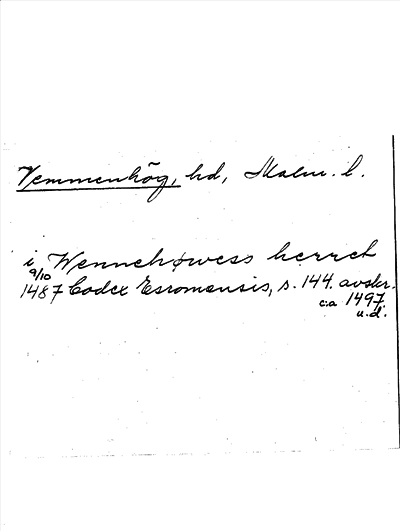 Vemmenhög, hd, Malm. l.
i Wennehøwess herret
9/10
1487 Codex Esromensis, s. 144. avskr.
c:a 1497.
u.d.